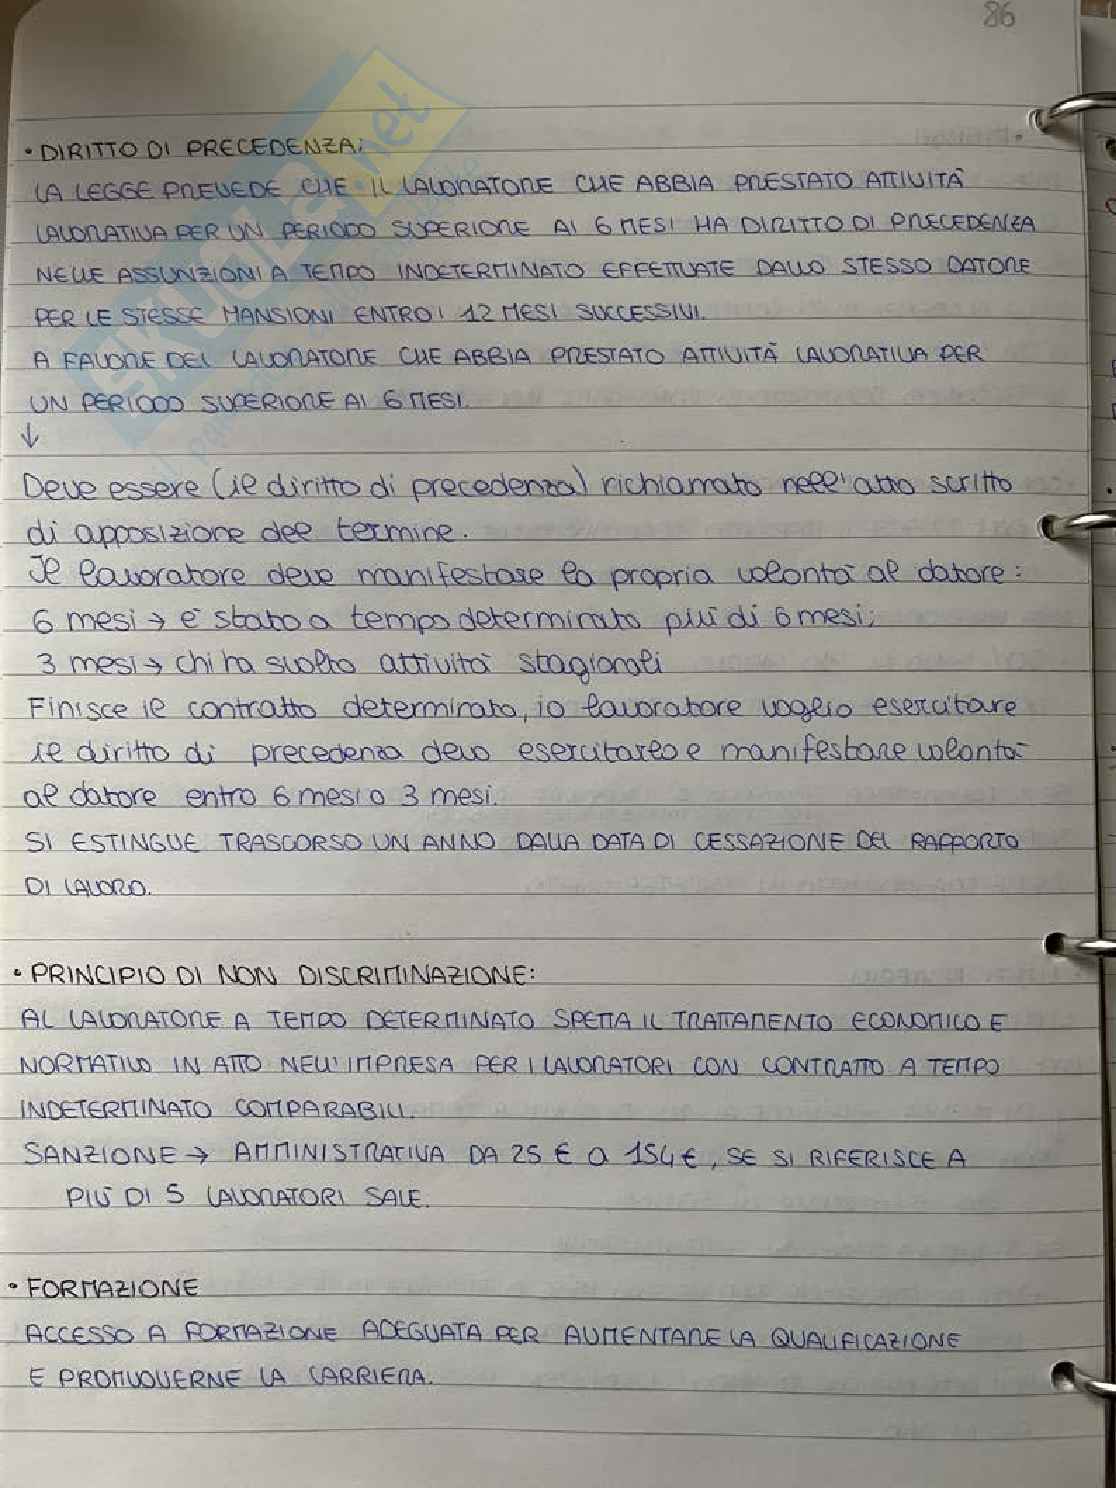 86
• DIRITTO DI PRECEDENZA:
LA LEGGE PREVEDE CHE IL LAVORATORE CHE ABBIA PRESTATO ATTIVITÀ
LAVORATIVA PER UN PERIODO SUPERIORE AI 6 MESI HA DIRITTO DI PRECEDENZA
NELLE ASSUNZIONI A TEMPO INDETERMINATO EFFETTUATE DALLO STESSO DATORE
PER LE STESSE MANSIONI ENTRO I 12 MESI SUCCESSIVI.
A FAVORE DEL LAVORATORE CHE ABBIA PRESTATO ATTIVITÀ LAVORATIVA PER
UN PERIODO SUPERIORE AI 6 MESI.
↓
Deve essere (il diritto di precedenza) richiamato nell'atto scritto
di apposizione del termine.
Il lavoratore deve manifestare la propria volontà al datore:
6 mesi → è stato a tempo determinato più di 6 mesi;
3 mesi → chi ha svolto attività stagionali
Finisce il contratto determinato, io lavoratore voglio esercitare
il diritto di precedenza devo esercitarlo e manifestare volontà
al datore entro 6 mesi o 3 mesi.
SI ESTINGUE TRASCORSO UN ANNO DALLA DATA DI CESSAZIONE DEL RAPPORTO
DI LAVORO.
• PRINCIPIO DI NON DISCRIMINAZIONE:
AL LAVORATORE A TEMPO DETERMINATO SPETTA IL TRATTAMENTO ECONOMICO E
NORMATIVO IN ATTO NELL'IMPRESA PER I LAVORATORI CON CONTRATTO A TEMPO
INDETERMINATO COMPARABILI.
SANZIONE → AMMINISTRATIVA DA 25 € A 154 €, SE SI RIFERISCE A
PIÙ DI 5 LAVORATORI SALE.
• FORMAZIONE
ACCESSO A FORMAZIONE ADEGUATA PER AUMENTARE LA QUALIFICAZIONE
E PROMUOVERNE LA CARRIERA.